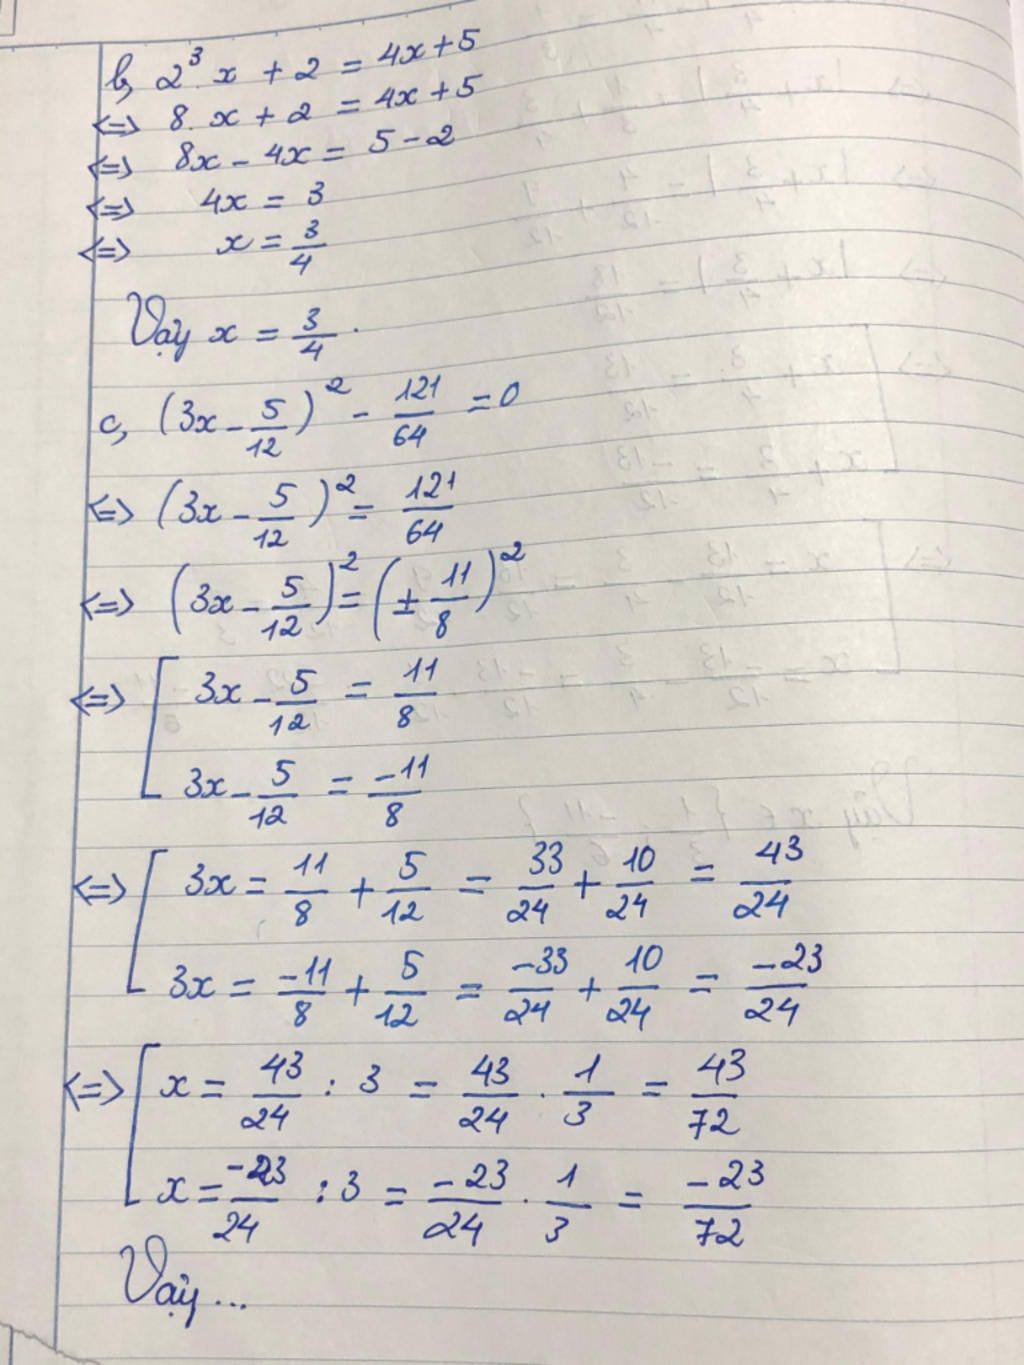 b, 2³. x + 2 = 4x + 5
<=> 8. x + 2 = 4x + 5
<=> 8x - 4x = 5 - 2
<=> 4x = 3
<=> x = 3/4
Vậy x = 3/4.
c, (3x - 5/12)² - 121/64 = 0
<=> (3x - 5/12)² = 121/64
<=> (3x - 5/12)² = (± 11/8)²
<=> [ 3x - 5/12 = 11/8
3x - 5/12 = -11/8
<=> [ 3x = 11/8 + 5/12 = 33/24 + 10/24 = 43/24
3x = -11/8 + 5/12 = -33/24 + 10/24 = -23/24
<=> [ x = 43/24 : 3 = 43/24 . 1/3 = 43/72
x = -23/24 : 3 = -23/24 . 1/3 = -23/72
Vậy ...